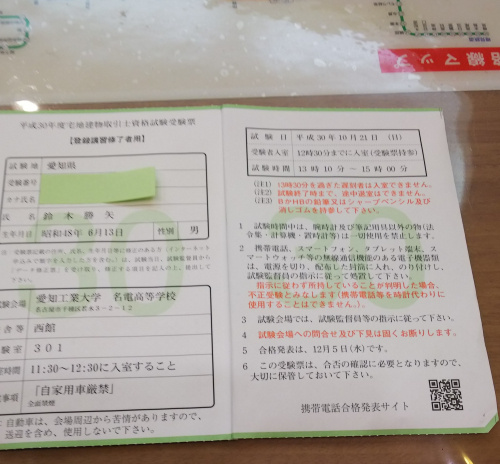 路線マップ
平成30年度宅地建物取引士資格試験受験票
【登録講習修了者用】
試験地 愛知県
受験番号
カナ氏名
氏名 鈴木勝矢
生年月日 昭和48年6月13日 性別 男
試験会場 愛知工業大学 名電高等学校
名古屋市千種区若水3-2-12
舎等 西館
験室 301
時間 11:30~12:30に入室すること
事項 「自家用車厳禁」
全面禁煙
自動車は、会場周辺から苦情がありますので、
送迎を含め、使用しないで下さい。
試験日 平成30年10月21日(日)
受験者入室 12時30分までに入室(受験票持参)
試験時間 13時10分~15時00分
(注1) 13時30分を過ぎた遅刻者は入室できません。
(注2) 試験終了時まで、途中退室はできません。
(注3) BかHBの鉛筆又はシャープペンシル及び
消しゴムを持参して下さい。
1 試験時間中は、腕時計及び筆記用具以外の物(法
令集・計算機・置時計等)は一切使用を禁止します。
2 携帯電話、スマートフォン、タブレット端末、ス
マートウォッチ等の無線通信機能のある電子機器類
は、電源を切り、配布した封筒に入れ、のり付けし、
試験監督員の指示に従って処置して下さい。
指示に従わず所持していることが判明した場合、
不正受験とみなします(携帯電話等を時計代わりに
使用することはできません。)。
3 試験会場では、試験監督員等の指示に従って下さい。
4 試験会場への問合せ及び下見は固くお断りします。
5 合格発表は、12月5日(水)です。
6 この受験票は、合否の確認に必要となりますので、
大切に保管しておいて下さい。
携帯電話合格発表サイト